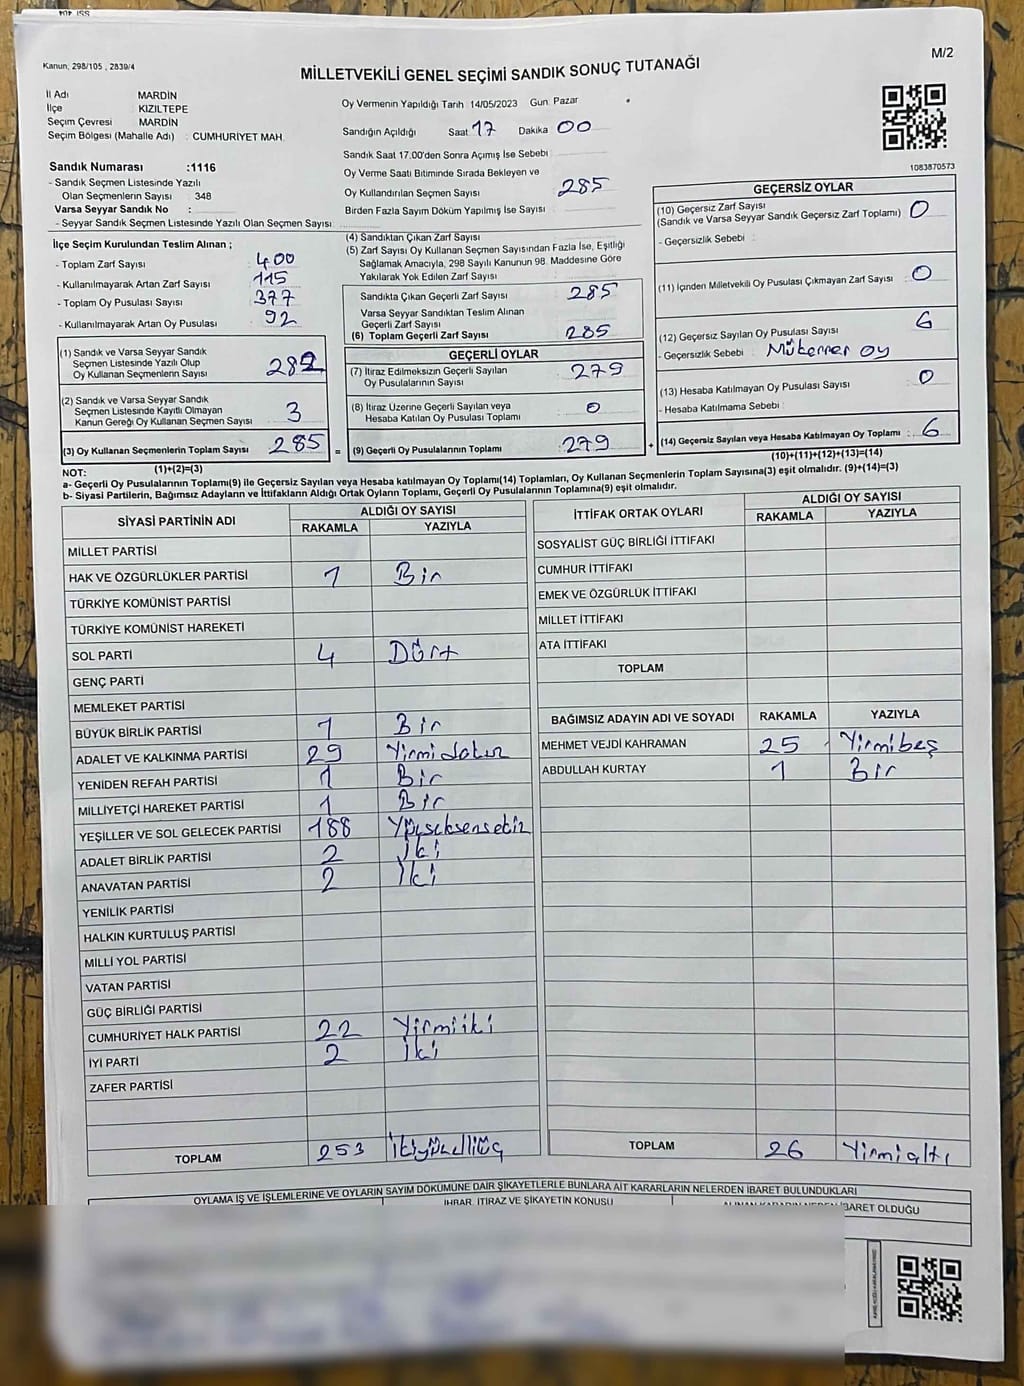 Kanun; 298/105 , 2839/4
M/2
MİLLETVEKİLİ GENEL SEÇİMİ SANDIK SONUÇ TUTANAĞI
İl Adı MARDİN
İlçe KIZILTEPE
Seçim Çevresi MARDİN
Seçim Bölgesi (Mahalle Adı) : CUMHURİYET MAH.
Sandık Numarası :1116
- Sandık Seçmen Listesinde Yazılı
Olan Seçmenlerin Sayısı : 348
Varsa Seyyar Sandık No :
- Seyyar Sandık Seçmen Listesinde Yazılı Olan Seçmen Sayısı
Oy Vermenin Yapıldığı Tarih 14/05/2023 Gün Pazar
Sandığın Açıldığı Saat 17 Dakika 00
Sandık Saat 17.00'den Sonra Açımış İse Sebebi
Oy Verme Saati Bitiminde Sırada Bekleyen ve
Oy Kullandırılan Seçmen Sayısı 285
Birden Fazla Sayım Döküm Yapılmış İse Sayısı
1083870573
İlçe Seçim Kurulundan Teslim Alınan ;
- Toplam Zarf Sayısı 400
- Kullanılmayarak Artan Zarf Sayısı 115
- Toplam Oy Pusulası Sayısı 377
- Kullanılmayarak Artan Oy Pusulası 92
(1) Sandık ve Varsa Seyyar Sandık
Seçmen Listesinde Yazılı Olup
Oy Kullanan Seçmenlerin Sayısı 282
(2) Sandık ve Varsa Seyyar Sandık
Seçmen Listesinde Kayıtlı Olmayan
Kanun Gereği Oy Kullanan Seçmen Sayısı 3
(3) Oy Kullanan Seçmenlerin Toplam Sayısı 285 =
(4) Sandıktan Çıkan Zarf Sayısı
(5) Zarf Sayısı Oy Kullanan Seçmen Sayısından Fazla İse, Eşitliği
Sağlamak Amacıyla, 298 Sayılı Kanunun 98. Maddesine Göre
Yakılarak Yok Edilen Zarf Sayısı
Sandıkta Çıkan Geçerli Zarf Sayısı 285
Varsa Seyyar Sandıktan Teslim Alınan
Geçerli Zarf Sayısı
(6) Toplam Geçerli Zarf Sayısı 285
GEÇERLİ OYLAR
(7) İtiraz Edilmeksizin Geçerli Sayılan
Oy Pusulalarının Sayısı 279
(8) İtiraz Üzerine Geçerli Sayılan veya
Hesaba Katılan Oy Pusulası Toplamı 0
(9) Geçerli Oy Pusulalarının Toplamı 279 +
GEÇERSİZ OYLAR
(10) Geçersiz Zarf Sayısı
(Sandık ve Varsa Seyyar Sandık Geçersiz Zarf Toplamı) 0
- Geçersizlik Sebebi :
(11) İçinden Milletvekili Oy Pusulası Çıkmayan Zarf Sayısı 0
(12) Geçersiz Sayılan Oy Pusulası Sayısı 6
- Geçersizlik Sebebi : Mükerrer oy
(13) Hesaba Katılmayan Oy Pusulası Sayısı 0
- Hesaba Katılmama Sebebi :
(14) Geçersiz Sayılan veya Hesaba Katılmayan Oy Toplamı : 6
(10)+(11)+(12)+(13)=(14)
NOT: (1)+(2)=(3)
a- Geçerli Oy Pusulalarının Toplamı(9) ile Geçersiz Sayılan veya Hesaba katılmayan Oy Toplamı(14) Toplamları, Oy Kullanan Seçmenlerin Toplam Sayısına(3) eşit olmalıdır. (9)+(14)=(3)
b- Siyasi Partilerin, Bağımsız Adayların ve İttifakların Aldığı Ortak Oyların Toplamı, Geçerli Oy Pusulalarının Toplamına(9) eşit olmalıdır.
SİYASİ PARTİNİN ADI ALDIĞI OY SAYISI
RAKAMLA YAZIYLA
MİLLET PARTİSİ
HAK VE ÖZGÜRLÜKLER PARTİSİ 1 Bir
TÜRKİYE KOMÜNİST PARTİSİ
TÜRKİYE KOMÜNİST HAREKETİ
SOL PARTİ 4 Dört
GENÇ PARTİ
MEMLEKET PARTİSİ
BÜYÜK BİRLİK PARTİSİ 1 Bir
ADALET VE KALKINMA PARTİSİ 29 Yirmi dokuz
YENİDEN REFAH PARTİSİ 1 Bir
MİLLİYETÇİ HAREKET PARTİSİ 1 Bir
YEŞİLLER VE SOL GELECEK PARTİSİ 188 Yüzseksensekiz
ADALET BİRLİK PARTİSİ 2 İki
ANAVATAN PARTİSİ 2 İki
YENİLİK PARTİSİ
HALKIN KURTULUŞ PARTİSİ
MİLLİ YOL PARTİSİ
VATAN PARTİSİ
GÜÇ BİRLİĞİ PARTİSİ
CUMHURİYET HALK PARTİSİ 22 Yirmiiki
İYİ PARTİ 2 İki
ZAFER PARTİSİ
TOPLAM 253 İkiyüzelliüç
İTTİFAK ORTAK OYLARI ALDIĞI OY SAYISI
RAKAMLA YAZIYLA
SOSYALİST GÜÇ BİRLİĞİ İTTİFAKI
CUMHUR İTTİFAKI
EMEK VE ÖZGÜRLÜK İTTİFAKI
MİLLET İTTİFAKI
ATA İTTİFAKI
TOPLAM
BAĞIMSIZ ADAYIN ADI VE SOYADI RAKAMLA YAZIYLA
MEHMET VEJDİ KAHRAMAN 25 Yirmibeş
ABDULLAH KURTAY 1 Bir
TOPLAM 26 Yirmialtı
OYLAMA İŞ VE İŞLEMLERİNE VE OYLARIN SAYIM DÖKÜMÜNE DAİR ŞİKAYETLERLE BUNLARA AİT KARARLARIN NELERDEN İBARET BULUNDUKLARI
İHBAR, İTİRAZ VE ŞİKAYETİN KONUSU
İBARET OLDUĞU